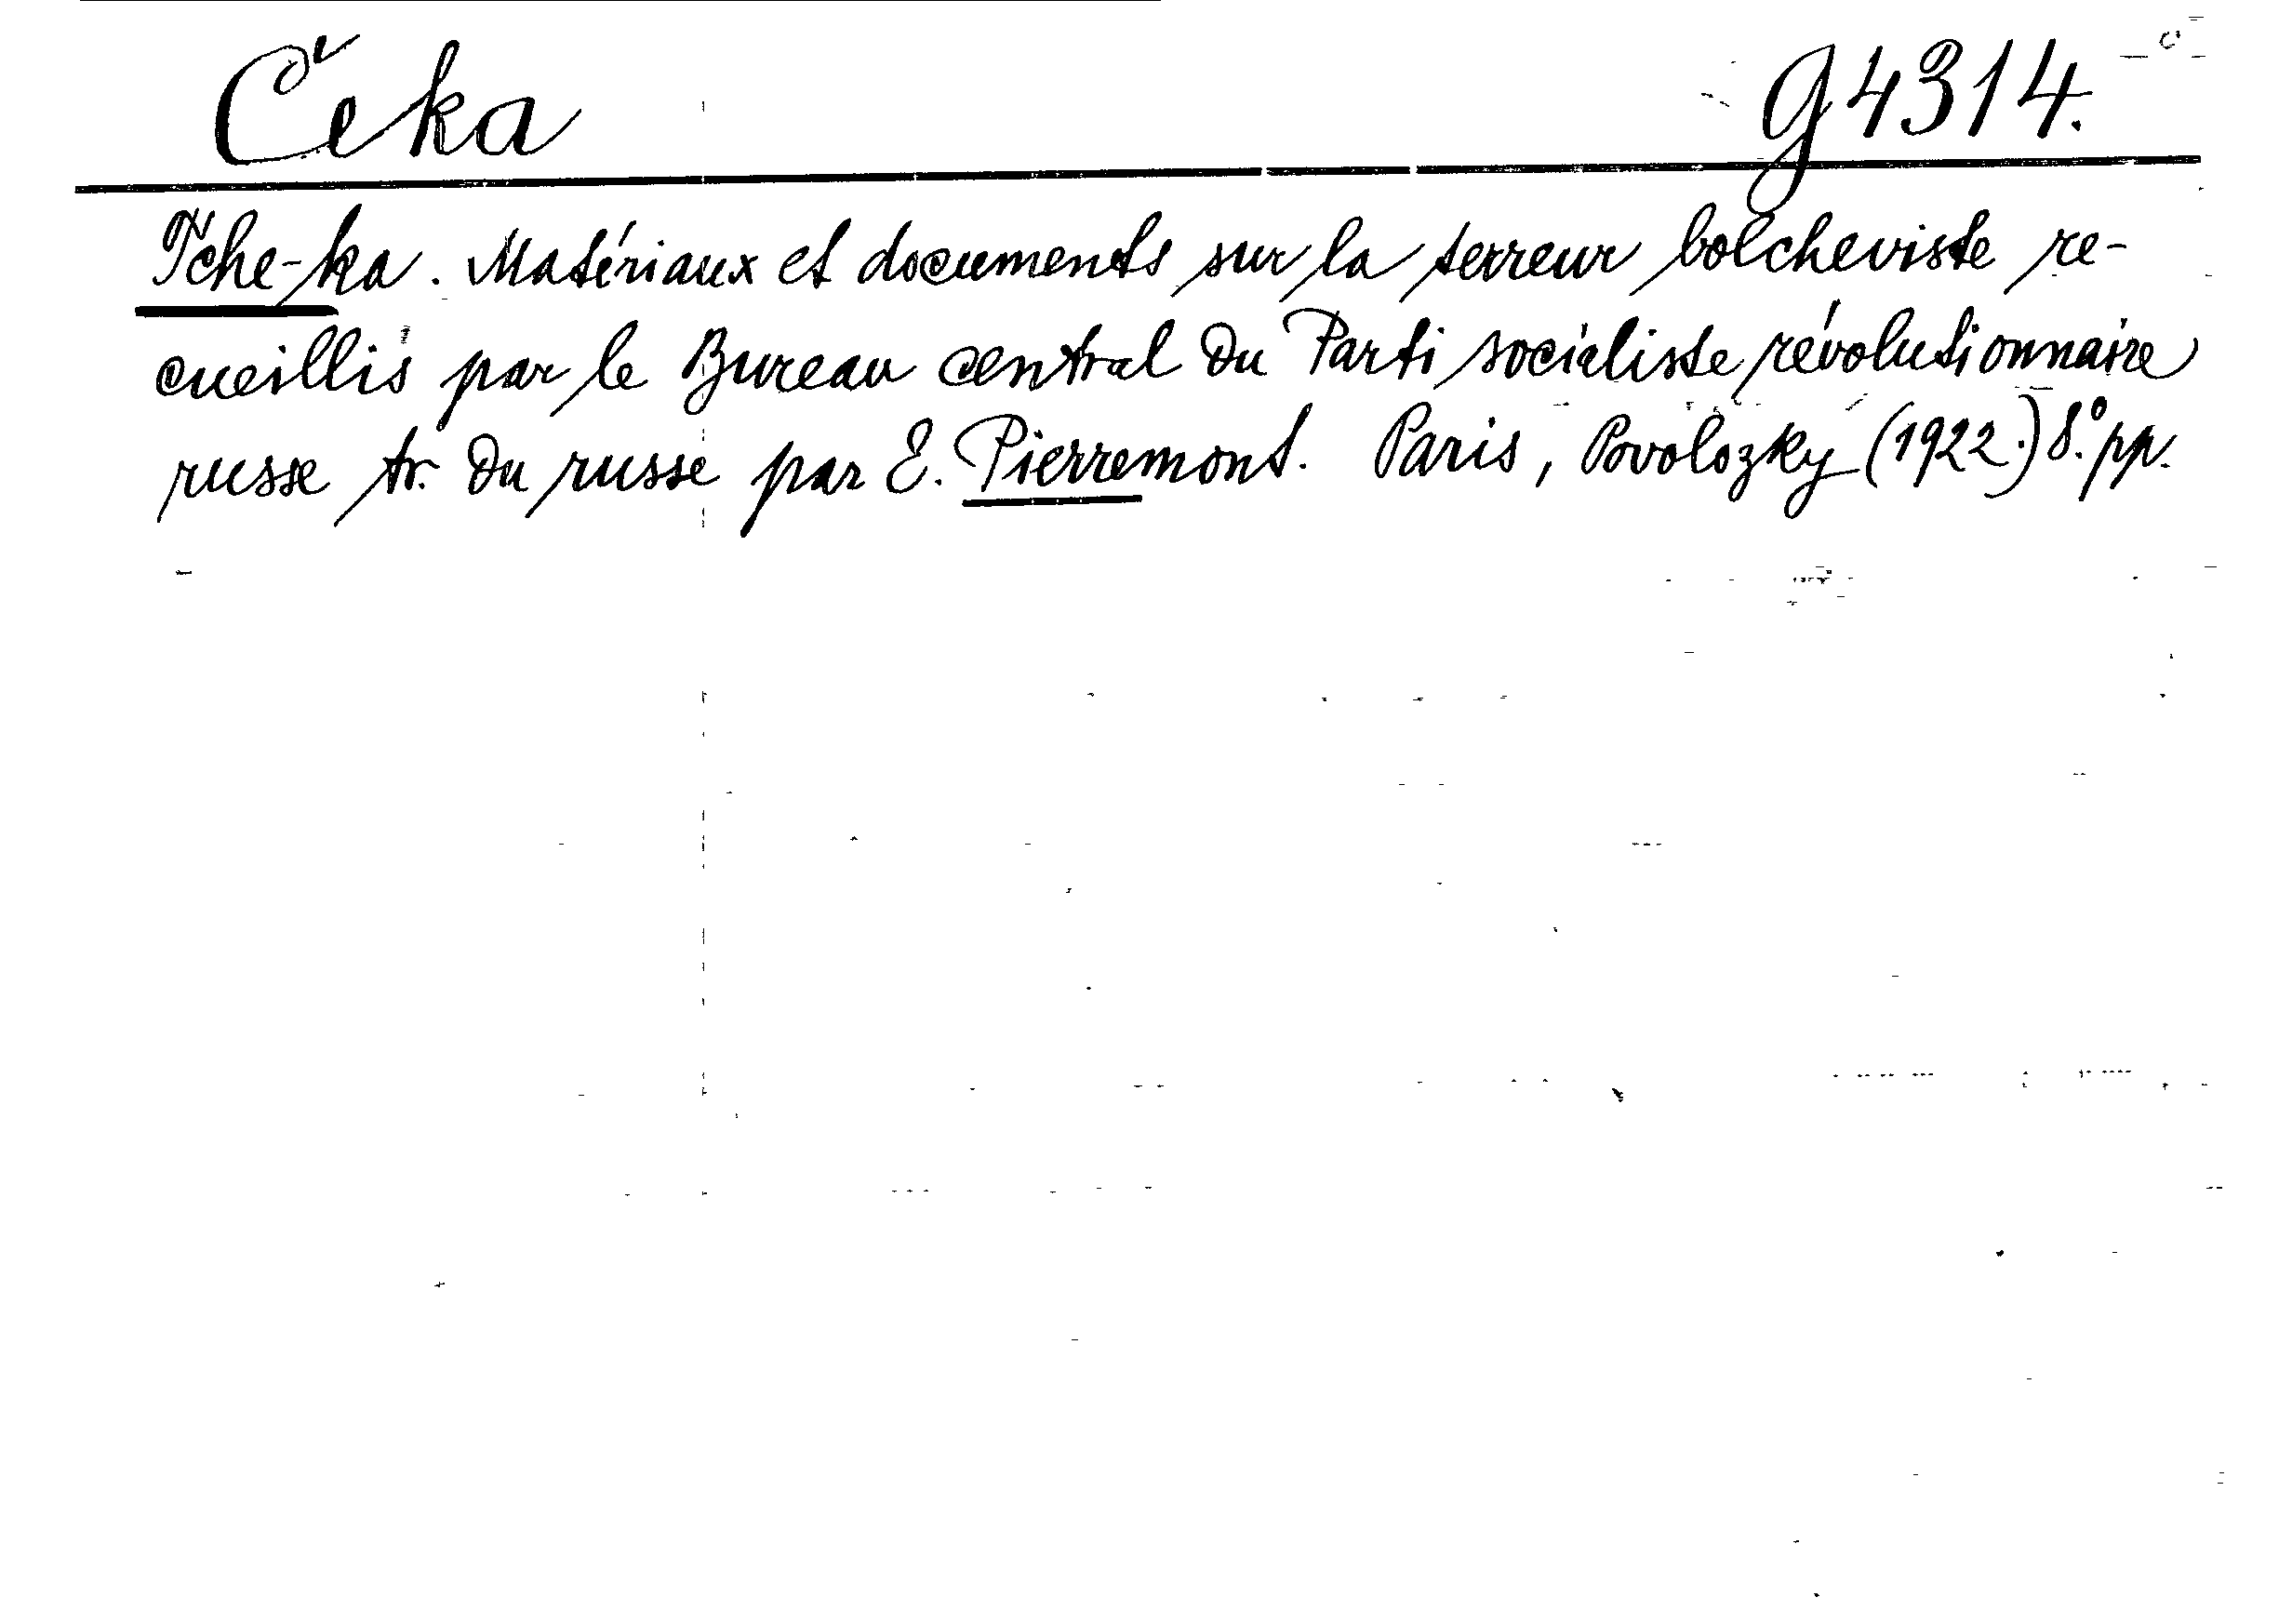 Čeka g4314.
Tche-ka. Matériaux et documents sur la terreur bolcheviste re-
cueillis par le Bureau central du Parti socialiste révolutionnaire
russe tr. du russe par E. Pierremont. Paris, Povolozky (1922.) 8.° pp.